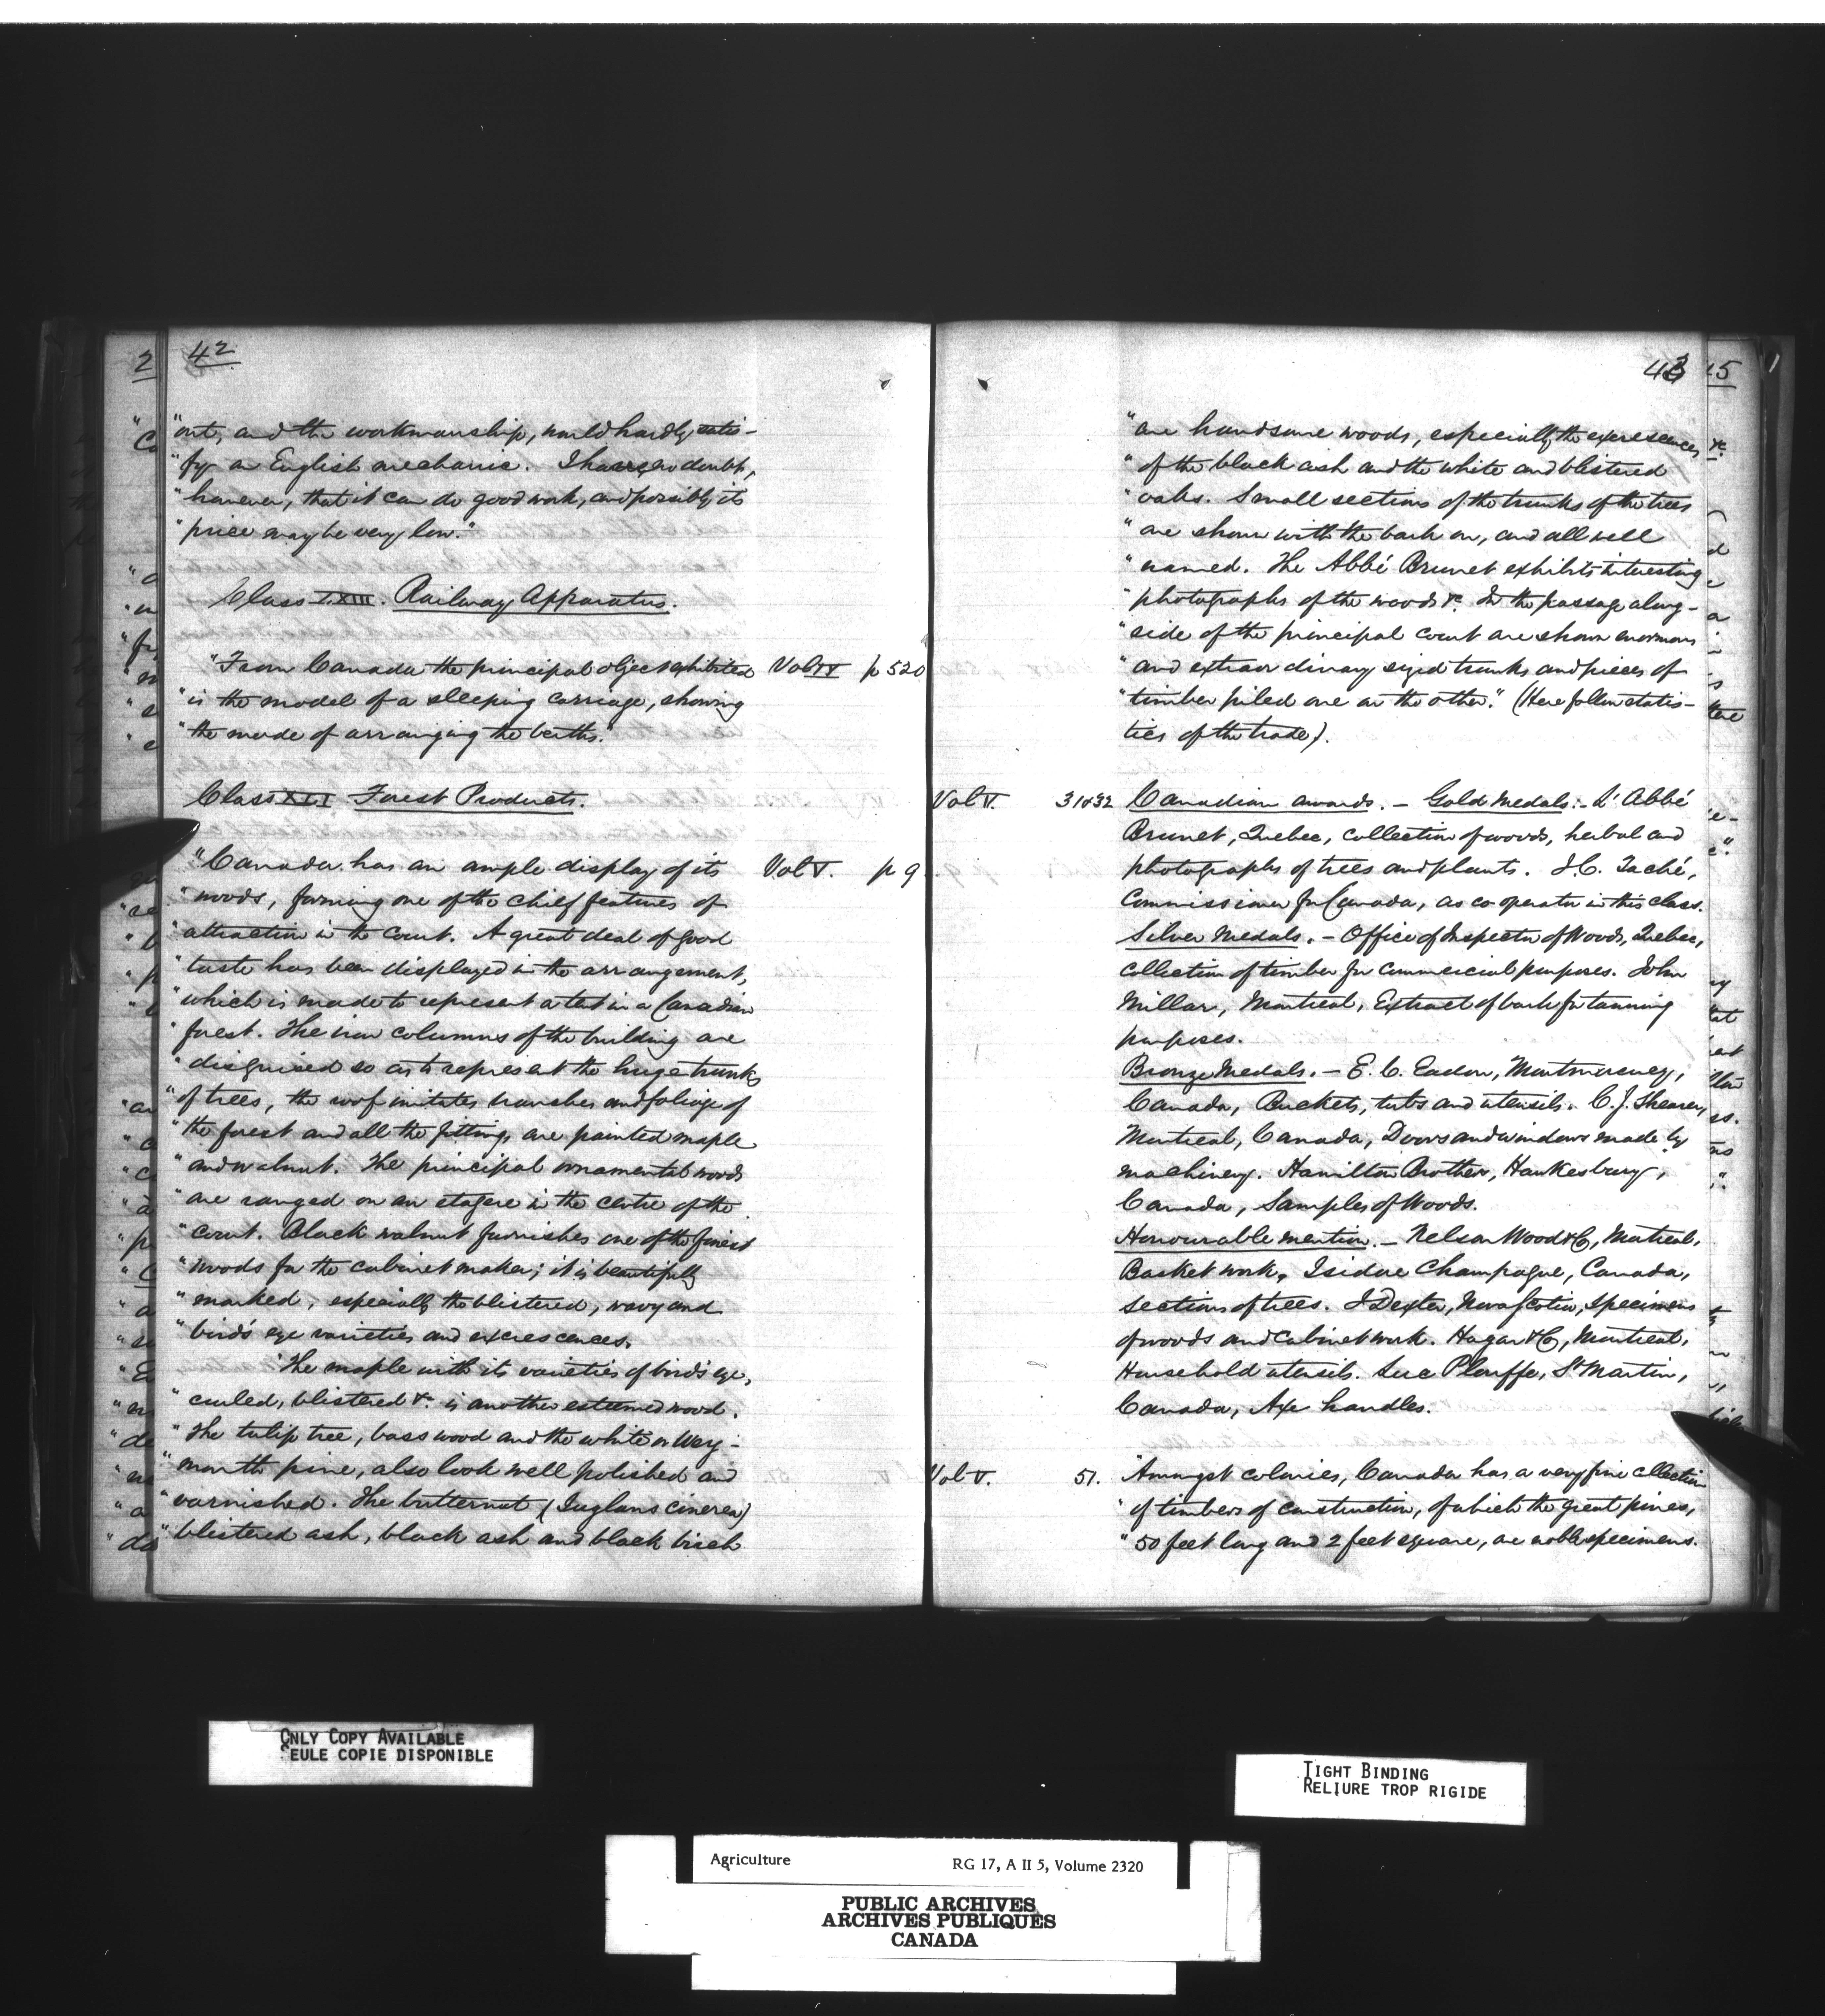 42
"out, and the workmanship, would hardly satis-
"fy an English mechanic. I have no doubt,
"however, that it can do good work, and possibly its
"price may be very low."
Class LXIII. Railway Apparatus.
"From Canada the principal object exhibited Vol IV p 520
"is the model of a sleeping carriage, showing
"the mode of arranging the berths."
Class XLI Forest Products.
"Canada has an ample display of its Vol V. p 9
"woods, forming one of the chief features of
"attraction in the Court. A great deal of good
"taste has been displayed in the arrangement,
"which is made to represent a tent in a Canadian
"forest. The iron columns of the building are
"disguised so as to represent the huge trunks
"of trees, the roof imitates branches and foliage of
"the forest and all the fittings are painted maple
"and walnut. The principal ornamental woods
"are ranged on an etagere in the centre of the
"court. Black walnut furnishes one of the finest
"woods for the cabinet maker; it is beautifully
"marked, especially the blistered, wavy and
"bird's eye varieties and excrescences.
"The maple with its varieties of bird's eye,
"curled, blistered &c. is another esteemed wood.
"The tulip tree, bass wood and the white or Wey-
"mouth pine, also look well polished and
"varnished. The butternut (Juglans cinerea)
"blistered ash, black ash and black birch
43
"are handsome woods, especially the excrescences
"of the black ash and the white and blistered
"oaks. Small sections of the trunks of the trees
"are shown with the bark on, and all well
"named. The Abbé Brunet exhibits interesting
"photographs of the woods &c. In the passage along-
"side of the principal court are shown enormous
"and extraordinary sized trunks and pieces of
"timber piled one on the other." (Here follow statis-
tics of the trade).
Vol V. 31&32 Canadian awards. - Gold Medals: - L'Abbé
Brunet, Quebec, collection of woods, herbal and
photographs of trees and plants. J.C. Taché,
Commissioner for Canada, as co-operator in this class.
Silver Medals. - Office of Inspector of Woods, Quebec,
collection of timber for commercial purposes. John
Millar, Montreal, Extract of bark for tanning
purposes.
Bronze Medals. - E. C. Eadon, Montmorency,
Canada, Buckets, tubs and utensils. C. J. Shearer,
Montreal, Canada, Doors and windows made by
machinery. Hamilton Brother, Hawkesbury,
Canada, Samples of Woods.
Honourable mention. - Nelson Wood & Co, Montreal,
Basket work, Isidore Champagne, Canada,
Sections of trees. J Dexter, Nova Scotia, specimens
of woods and cabinet work. Hagar & Co, Montreal,
Household utensils. Luc Plouffe, St Martin,
Canada, Axe handles.
Vol V. 51. "Amongst colonies, Canada has a very fine collection
"of timbers of construction, of which the great pines,
"50 feet long and 2 feet square, are noble specimens.
ONLY COPY AVAILABLE
SEULE COPIE DISPONIBLE
TIGHT BINDING
RELIURE TROP RIGIDE
Agriculture RG 17, A II 5, Volume 2320
PUBLIC ARCHIVES
ARCHIVES PUBLIQUES
CANADA